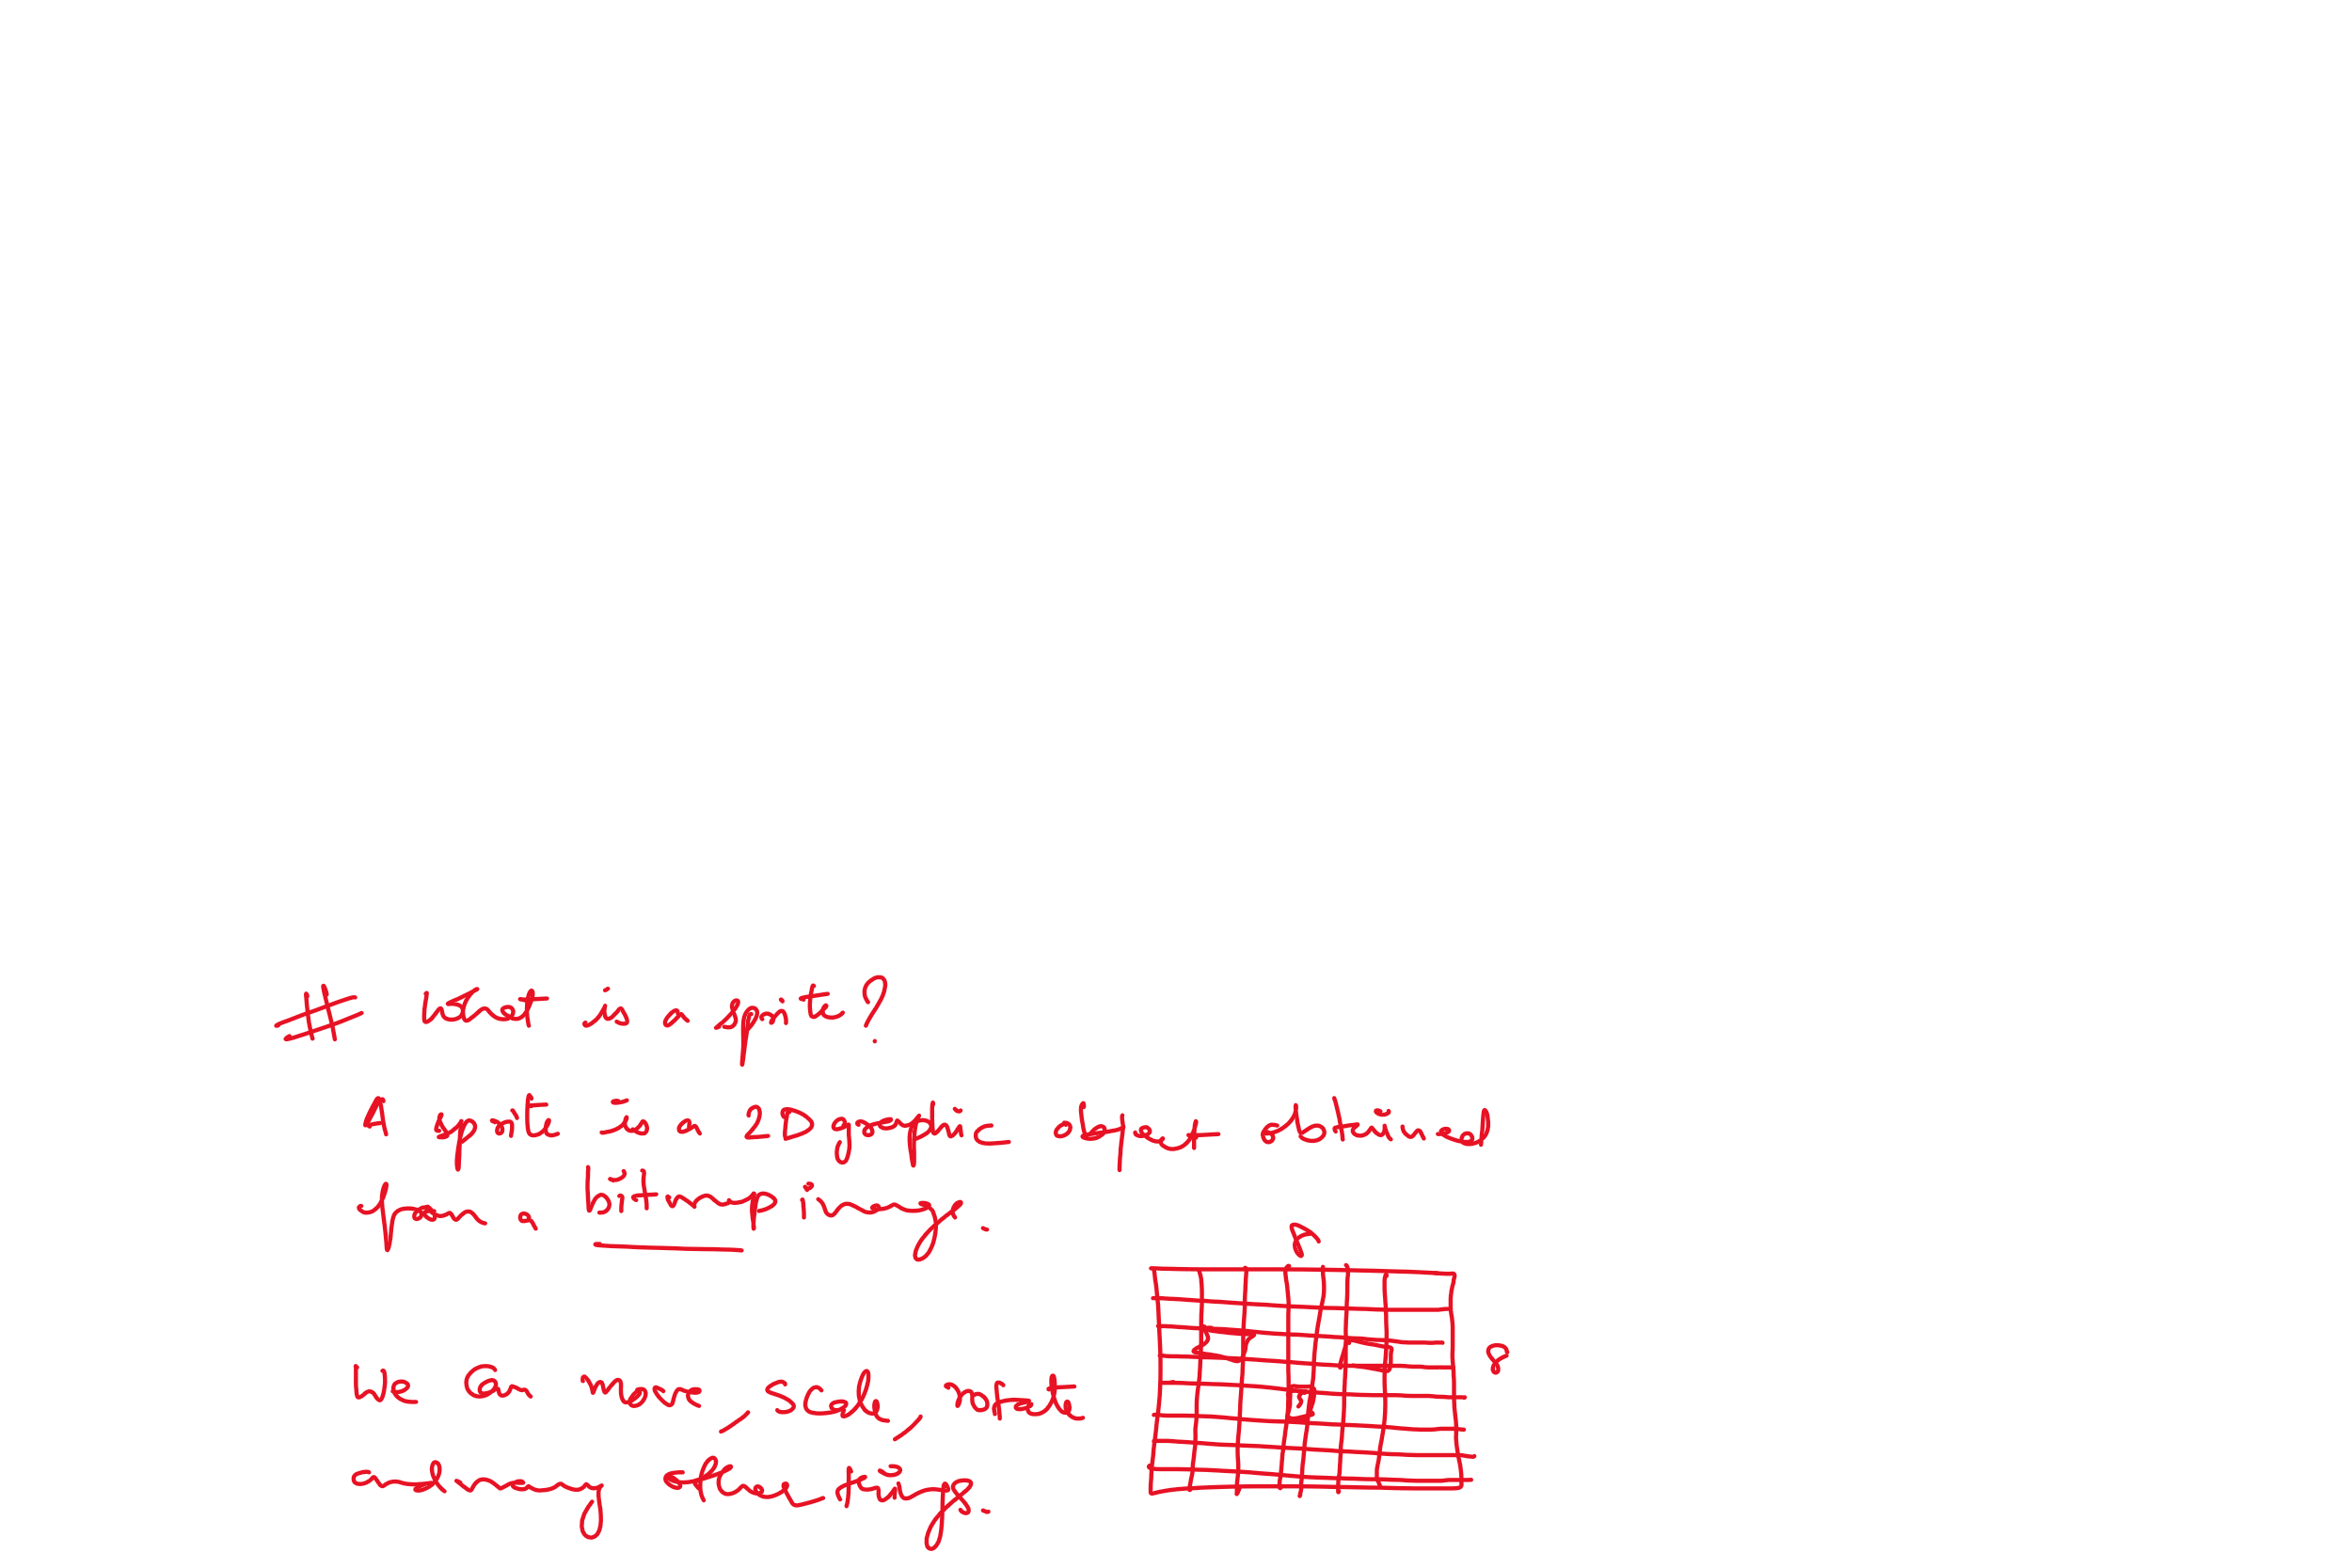 # What is a sprite?
A sprite is a 2D graphic object obtained
from a bitmap image.
We can move, scale, rotate
and many other things.
8
8